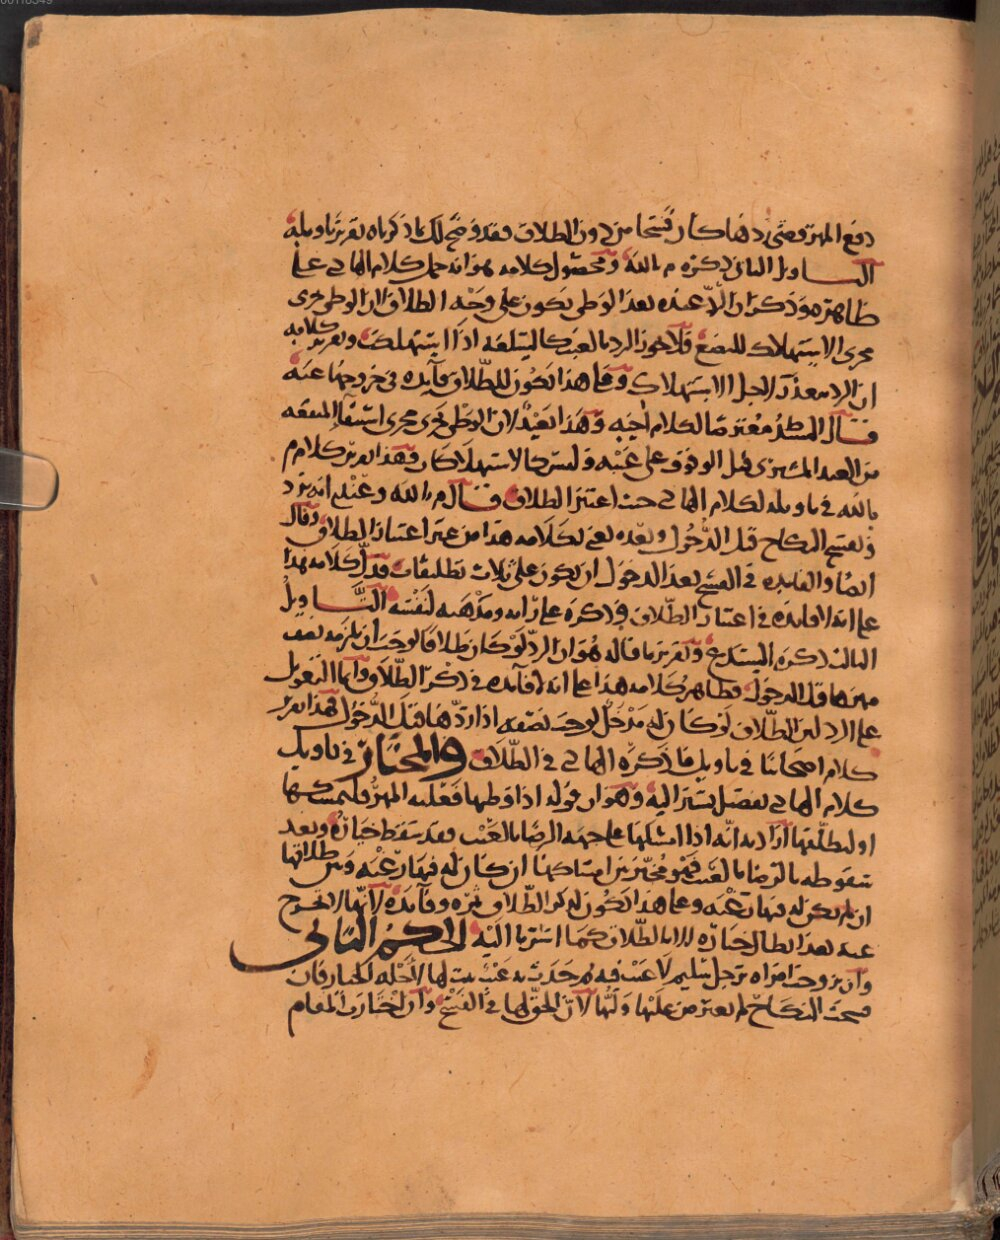 دفع المهر ومتى ردها كان فسخا من دون الطلاق فقد وضح لك بما ذكرناه تقرير تاويله
التاويل الثاني ذكره م بالله ومحصول كلامه هو انه حمل كلام الهادي على
ظاهره وذكر ان الرد عنده بعد الوطي يكون على وجه الطلاق لان الوطي جرى
مجرى الاستهلاك للبضع فلا يجوز الرد بالعيب كالسلعة اذا استهلكت وتقرير كلامه
ان الرد متعذر لاجل الاستهلاك وعلى هذا تكون للطلاق فآيده في خروجها عنه
قال السيد معترضا لكلام اخيه وهذا بعيد لان الوطي يجري مجرى استيفا المنفعه
من العبد المشترى قبل الوقوف على عيبه وليس كالاستهلاك فهذا تقرير كلام م
بالله في تاويله لكلام الهادي حيث اعتبر الطلاق قال م بالله وعندي انه يرد
وبفسخ النكاح قبل الدخول وبعده يعني بكلامه هذا من غير اعتبار الطلاق وقال
ايضا والفايده في الفسخ بعد الدخول ان تكون على ثلاث تطليقات فدل كلامه هذا
على انه لا فايده في اعتبار الطلاق فيما ذكره على رايه ومذهبه لنفسه التاويل
الثالث ذكره السيد ع وتقرير ما قاله هو ان الرد لو كان طلاقا لوجب ان يلزمه نصف
مهرها قبل الدخول فظاهر كلامه هذا على انه لا فآيده في ذكر الطلاق وانما التعويل
على الرد لان الطلاق لو كان له مدخل لوجب نصفه اذا ردها قبل الدخول فهذا تقرير
كلام اصحابنا في تاويل ما ذكره الهادي في الطلاق والمختار في تاويل
كلام الهادي تفصيل نشير اليه وهو ان قوله اذا وطيها فعليه المهر فليمسكها
او ليطلقها اراد به انه اذا امسكها على جهه الرضا بالعيب فقد سقط خياره وبعد
سقوطه بالرضا بالعيب فهو مخير بين امساكها ان كان له فيها رغبه وبين طلاقها
ان لم يكن له فيها رغبه وعلى هذا يكون لذكر الطلاق ثمره وفآيده لانها لا تخرج
عنه بعد ابطال خياره للا بالطلاق كما اشرنا اليه الحكم الثاني
وان تزوجت امراه برجل سليم لا عيب فيه ثم حدث به عيب يثبت لها لاجله الخيار فان
فسخت النكاح لم يعترض عليها وليها لان الحق لها في الفسخ وان اختارت المقام